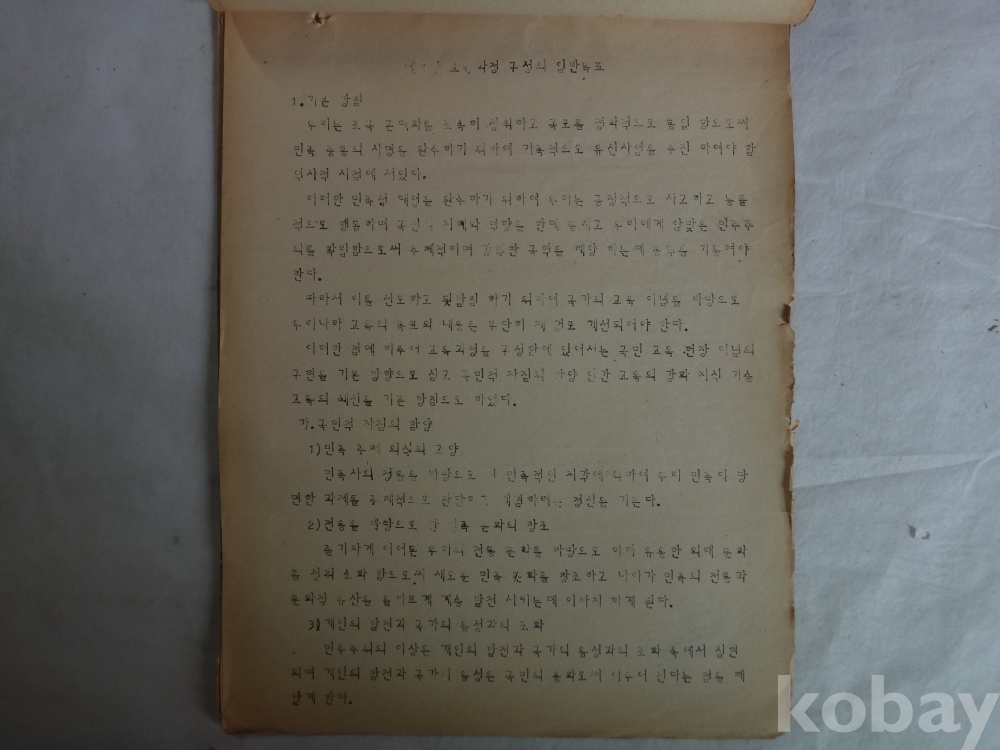 과정 구성의 일반목표
1.기본 방침
우리는 조국 근대화를 조속히 성취하고 국토를 평화적으로 통일 함으로써
민족 중흥의 사명을 완수하기 위하여 거족적으로 유신사업을 추진 하여야 할
역사적 시점에 서있다.
이러한 민족적 대업을 완수하기 위하여 우리는 긍정적으로 사고하고 능률
적으로 행동하며 국민의 지혜와 역량을 한데 뭉치고 우리에게 알맞는 민주주
의를 확립함으로써 주체적이며 강력한 국력을 배양 하는데 총력을 기울여야
한다.
따라서 이를 선도하고 뒷받침 하기 위하여 국가의 교육 이념을 바탕으로
우리나라 교육의 목표와 내용은 부단히 개선되어야 한다.
이러한 점에 비추어 교육과정을 구성함에 있어서는 국민 교육 헌장 이념의
구현을 기본 방향으로 삼고 국민적 자질의 함양 인간 교육의 강화 지식 기술
교육의 쇄신을 기본 방침으로 하였다.
가.국민적 자질의 함양
1)민족 주체 의식의 고양
민족사의 정통을 바탕으로 한 민족적인 자각에 의하여 우리 민족이 당
면한 과제를 주체적으로 판단하고 해결하려는 정신을 기른다.
2)전통을 바탕으로 한 민족 문화의 창조
줄기차게 이어온 우리의 전통 문화를 바탕으로 하여 유용한 외래 문화
를 섭취 소화 함으로써 새로운 민족 문화를 창조하고 나아가 민족의 전통과
문화적 유산을 올바르게 계승 발전 시키는데 이바지 하게 한다.
3)개인의 발전과 국가의 융성과의 조화
민주주의의 이상은 개인의 발전과 국가의 융성과의 조화 속에서 실현
되며 개인의 발전과 국가의 융성은 국민의 총화로써 이루어 진다는 점을 깨
닫게 한다.
kobay